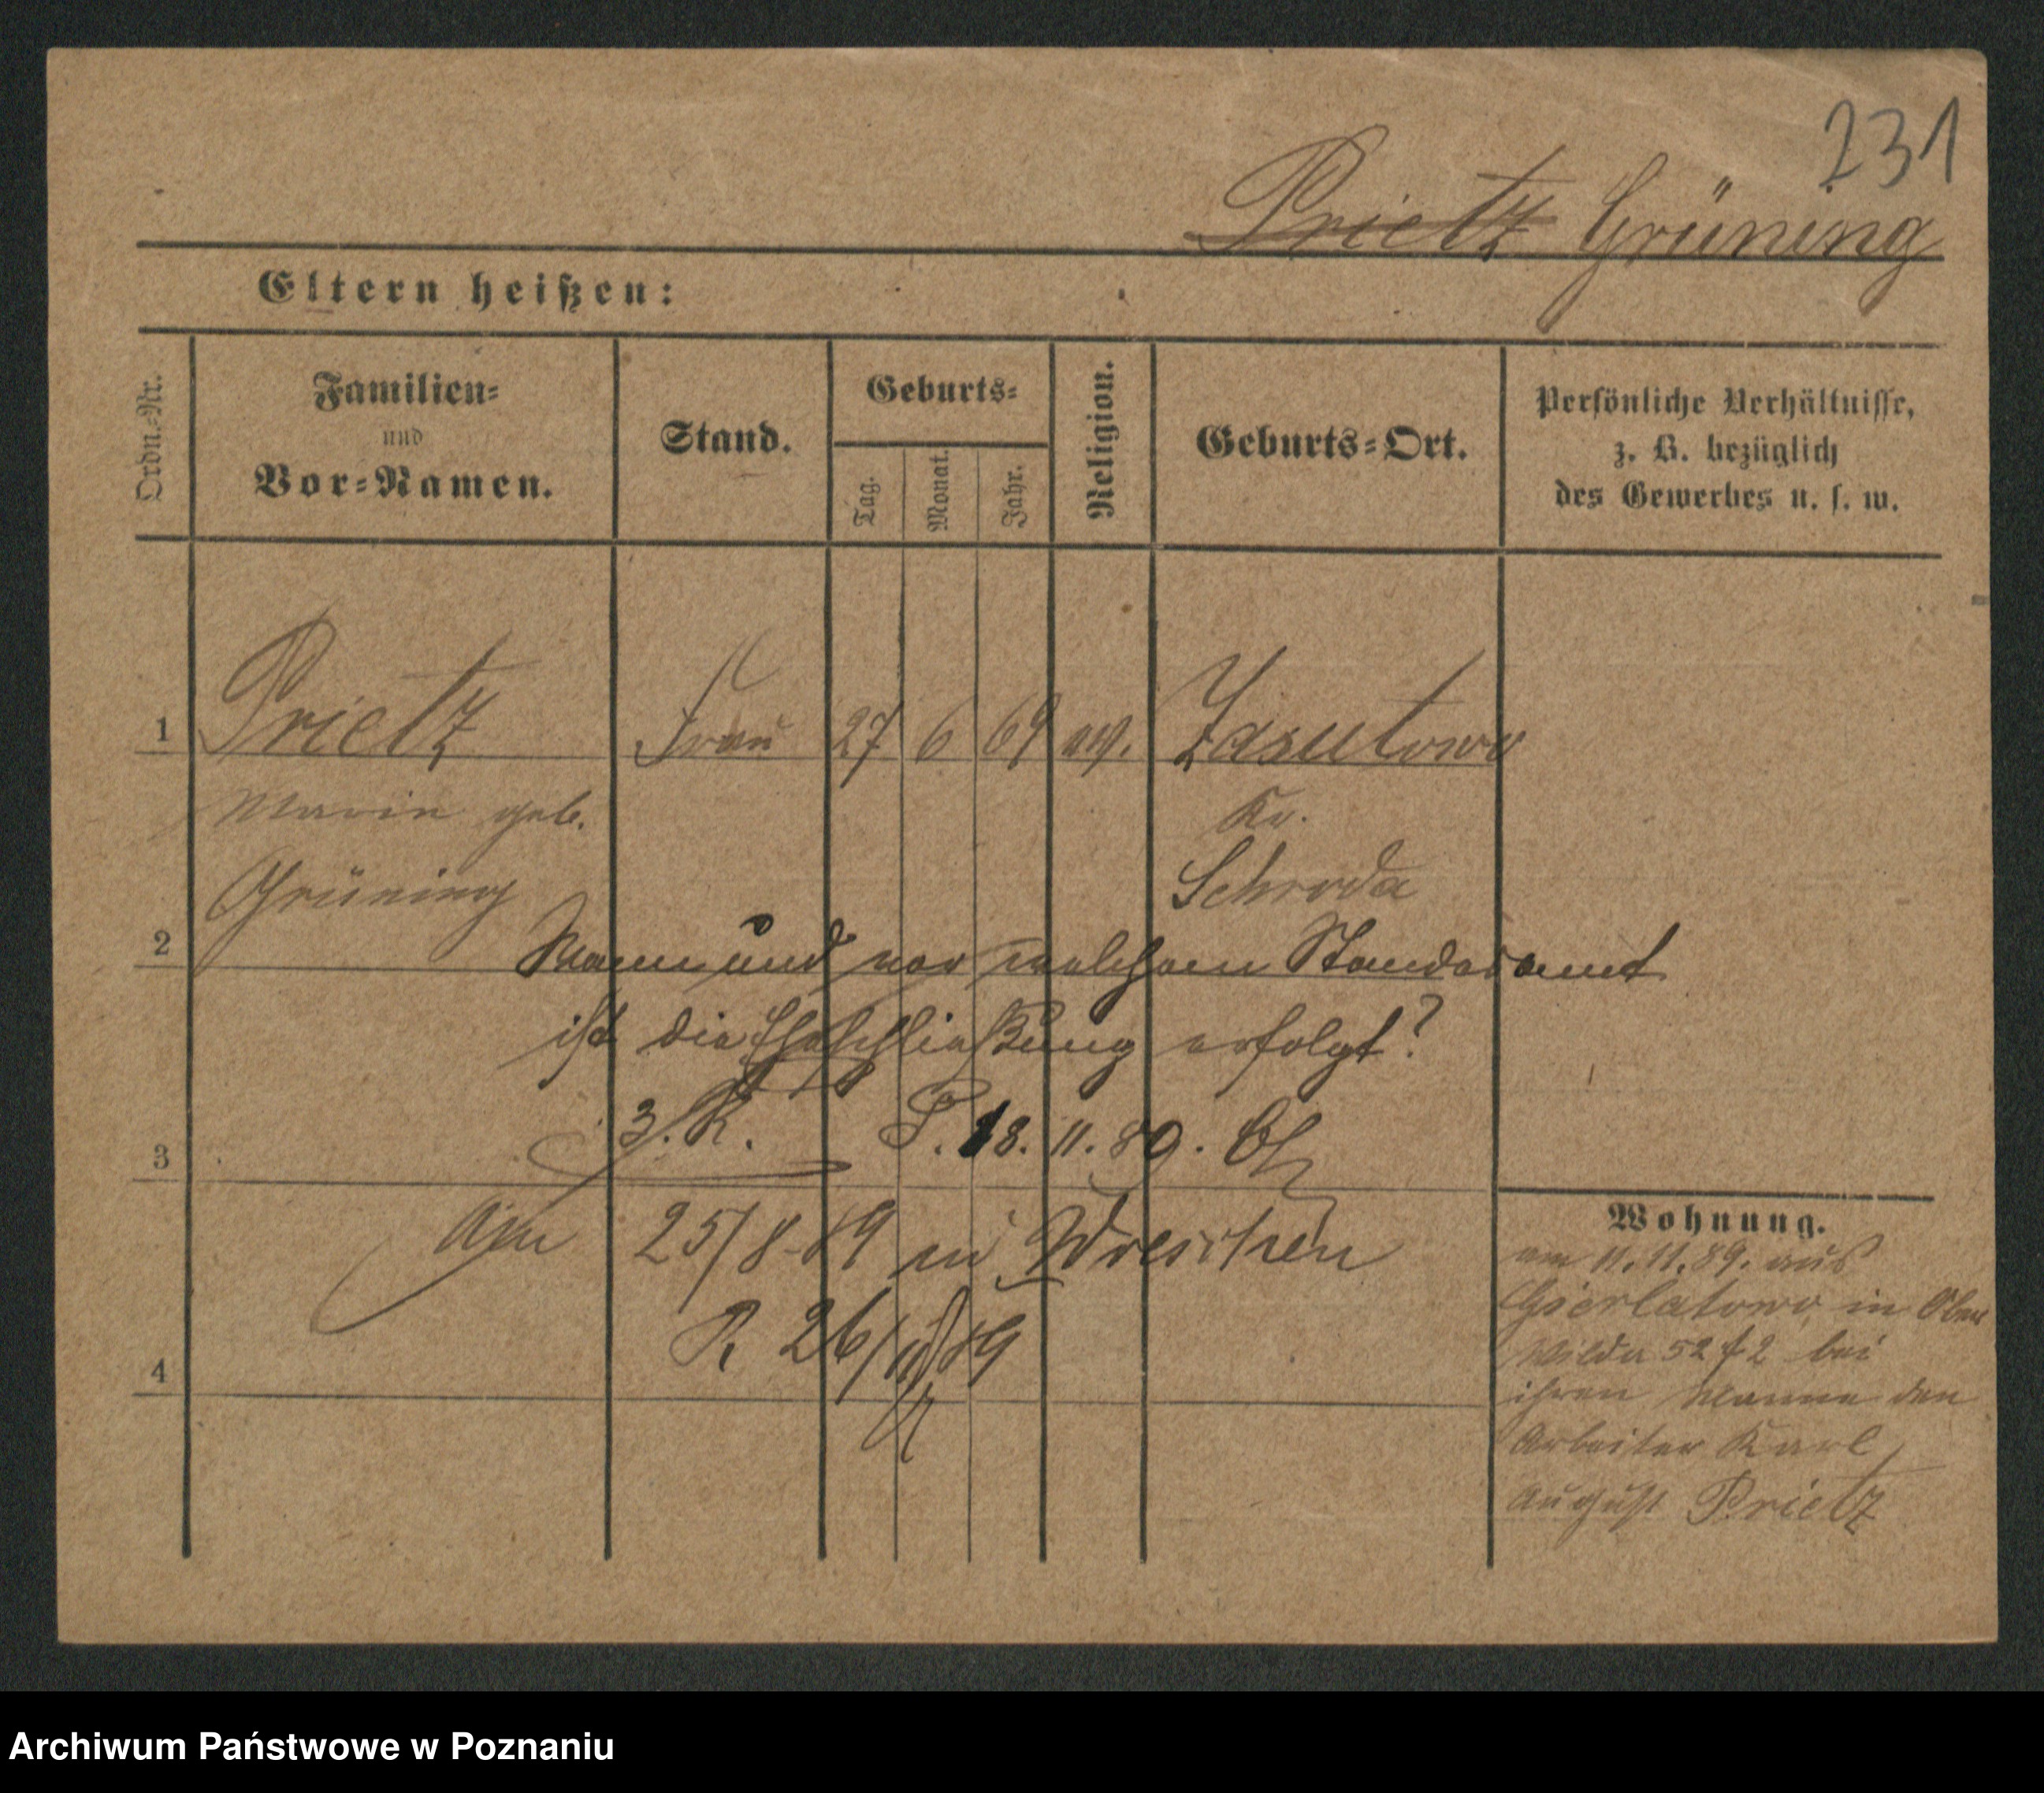 231
Prietz Grüning
Eltern heißen:
Ordn.-Nr.
Familien-
und
Vor-Namen.
Stand.
Geburts-
Tag.
Monat.
Jahr.
Religion.
Geburts-Ort.
Persönliche Verhältnisse,
z. B. bezüglich
des Gewerbes u. s. w.
1 Prietz Frau 27 6 69 ev. Zasutowo
Marie geb. Kr.
Grüning Schroda
2 Wann und vor welchem Standesamt
ist die Eheschließung erfolgt?
3. R. P. 18. 11. 89.
3
Am 25/8 89 in Wreschen
R 26/11 89
4
Wohnung.
am 11.11.89. aus
Gierlatowo, in Ober
Wilda 52 bei
ihren Manne den
Arbeiter Karl
August Prietz
Archiwum Państwowe w Poznaniu